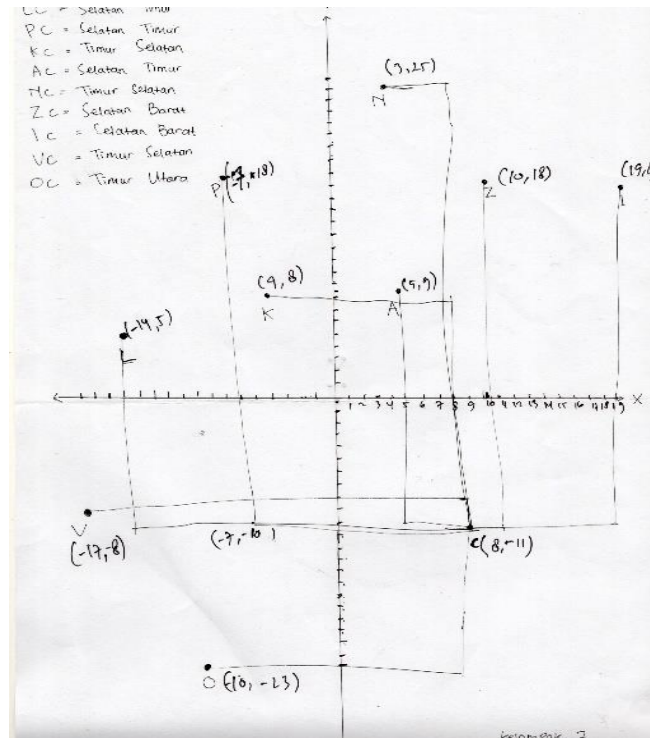 LC = Selatan Timur
PC = Selatan Timur
KC = Timur Selatan
AC = Selatan Timur
NC = Timur Selatan
ZC = Selatan Barat
IC = Selatan Barat
VC = Timur Selatan
OC = Timur Utara
(3,25)
N
P (-7, 18)
(10, 18)
Z
(19,
I
(9, 8)
K
(5,9)
A
(-19,5)
L
1 2 3 4 5 6 7 8 9 10 11 12 13 14 15 16 17 18 19 X
V
(-17,-8)
(-7, -10)
C(8,-11)
O (-10, -23)
kelompok 7